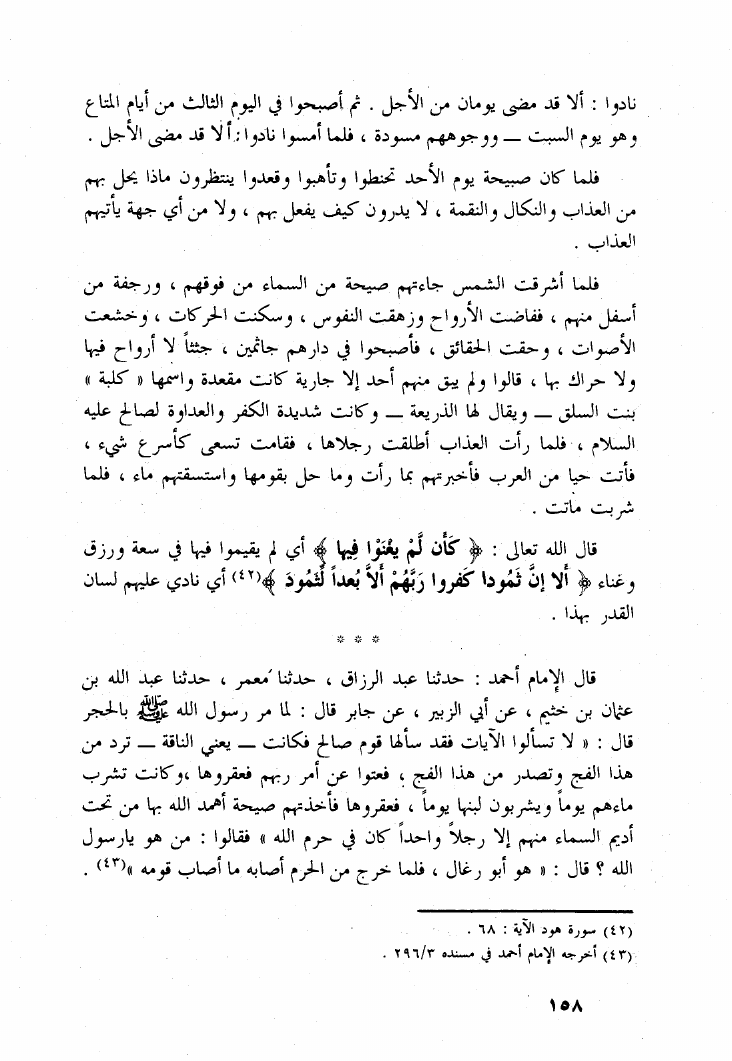 نادوا : ألا قد مضى يومان من الأجل . ثم أصبحوا في اليوم الثالث من أيام المتاع
وهو يوم السبت — ووجوههم مسودة ، فلما أمسوا نادوا : ألا قد مضى الأجل .
فلما كان صبيحة يوم الأحد تحنطوا وتأهبوا وقعدوا ينتظرون ماذا يحل بهم
من العذاب والنكال والنقمة ، لا يدرون كيف يفعل بهم ، ولا من أي جهة يأتيهم
العذاب .
فلما أشرقت الشمس جاءتهم صيحة من السماء من فوقهم ، ورجفة من
أسفل منهم ، ففاضت الأرواح وزهقت النفوس ، وسكنت الحركات ، وخشعت
الأصوات ، وحقت الحقائق ، فأصبحوا في دارهم جاثمين ، جثثاً لا أرواح فيها
ولا حراك بها ، قالوا ولم يبق منهم أحد إلا جارية كانت مقعدة واسمها « كلبة »
بنت السلق — ويقال لها الذريعة — وكانت شديدة الكفر والعداوة لصالح عليه
السلام ، فلما رأت العذاب أطلقت رجلاها ، فقامت تسعى كأسرع شيء ،
فأتت حيا من العرب فأخبرتهم بما رأت وما حل بقومها واستسقتهم ماء ، فلما
شربت ماتت .
قال الله تعالى : ﴿ كَأَن لَّمْ يَغْنَوْا فِيها ﴾ أي لم يقيموا فيها في سعة ورزق
وغناء ﴿ أَلا إنَّ ثَمُودا كَفروا رَبَّهُمْ أَلاَّ بُعداً لِّثَمُودَ ﴾(٤٢) أي نادي عليهم لسان
القدر بهذا .
* * *
قال الإمام أحمد : حدثنا عبد الرزاق ، حدثنا معمر ، حدثنا عبد الله بن
عثمان بن خثيم ، عن أبي الزبير ، عن جابر قال : لما مر رسول الله ﷺ بالحجر
قال : « لا تسألوا الآيات فقد سألها قوم صالح فكانت — يعني الناقة — ترد من
هذا الفج وتصدر من هذا الفج ، فعتوا عن أمر ربهم فعقروها ، وكانت تشرب
ماءهم يوماً ويشربون لبنها يوماً ، فعقروها فأخذتهم صيحة أهمد الله بها من تحت
أديم السماء منهم إلا رجلاً واحداً كان في حرم الله » فقالوا : من هو يارسول
الله ؟ قال : « هو أبو رغال ، فلما خرج من الحرم أصابه ما أصاب قومه »(٤٣) .
(٤٢) سورة هود الآية : ٦٨ .
(٤٣) أخرجه الإمام أحمد في مسنده ٢٩٦/٣ .
١٥٨